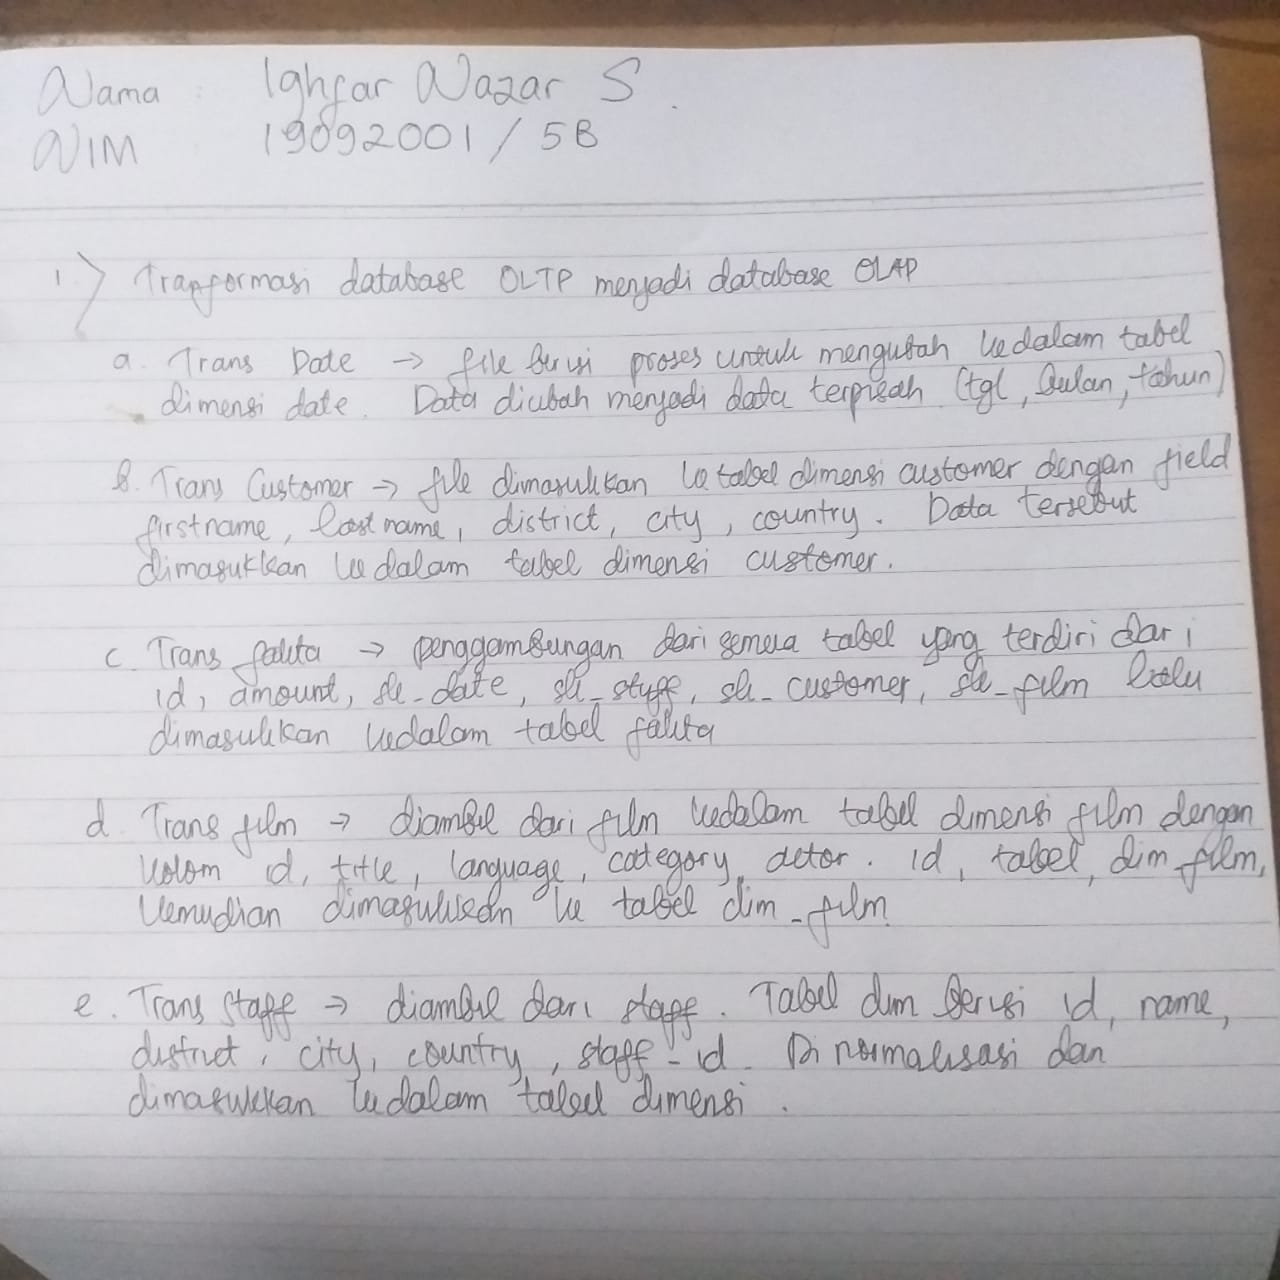 Nama : Ighfar Nazar S.
NIM 19092001 / 5B
1.) Tranformasi database OLTP menjadi database OLAP
a. Trans Date → file berisi proses untuk mengubah kedalam tabel
dimensi date. Data diubah menjadi data terpisah (tgl, bulan, tahun)
b. Trans Customer → file dimasukkan ke tabel dimensi customer dengan field
firstname, last name, district, city, country. Data tersebut
dimasukkan kedalam tabel dimensi customer.
c. Trans fakta → penggambungan dari semua tabel yang terdiri dari
id, amount, sk_date, sk_stuff, sk_customer, sk_film lalu
dimasukkan kedalam tabel fakta
d. Trans film → diambil dari film kedalam tabel dimensi film dengan
kolom id, title, language, category, actor. id, tabel, dim film,
kemudian dimasukkan ke tabel dim_film
e. Trans staff → diambil dari staff. Tabel dim berisi id, name,
district, city, country, staff_id. Di normalisasi dan
dimasukkan kedalam tabel dimensi.